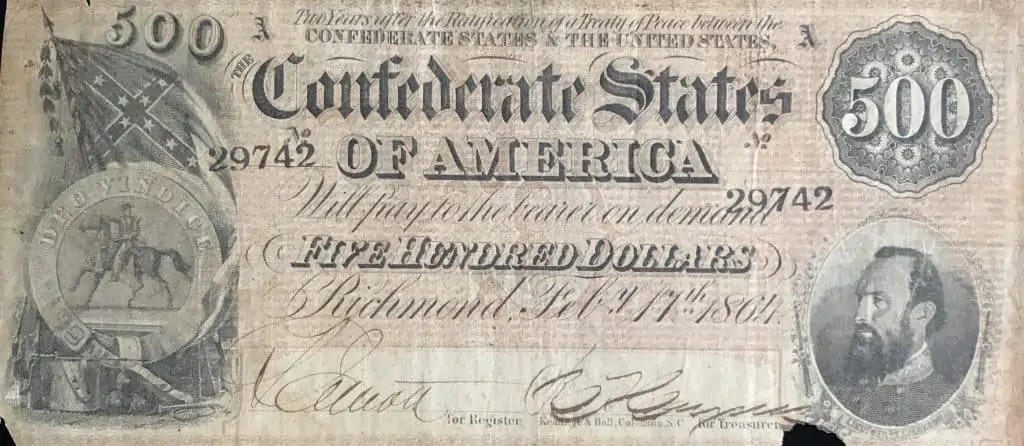 500
A Two Years after the Ratification of a Treaty of Peace between the A
CONFEDERATE STATES & THE UNITED STATES,
THE
Confederate States
500
No No
29742 OF AMERICA
29742
Will pay to the bearer on demand
DEO VINDICE
FIVE HUNDRED DOLLARS
Richmond, Feby. 17th 1864.
for Register Keatinge & Ball, Columbia, S.C. for Treasurer